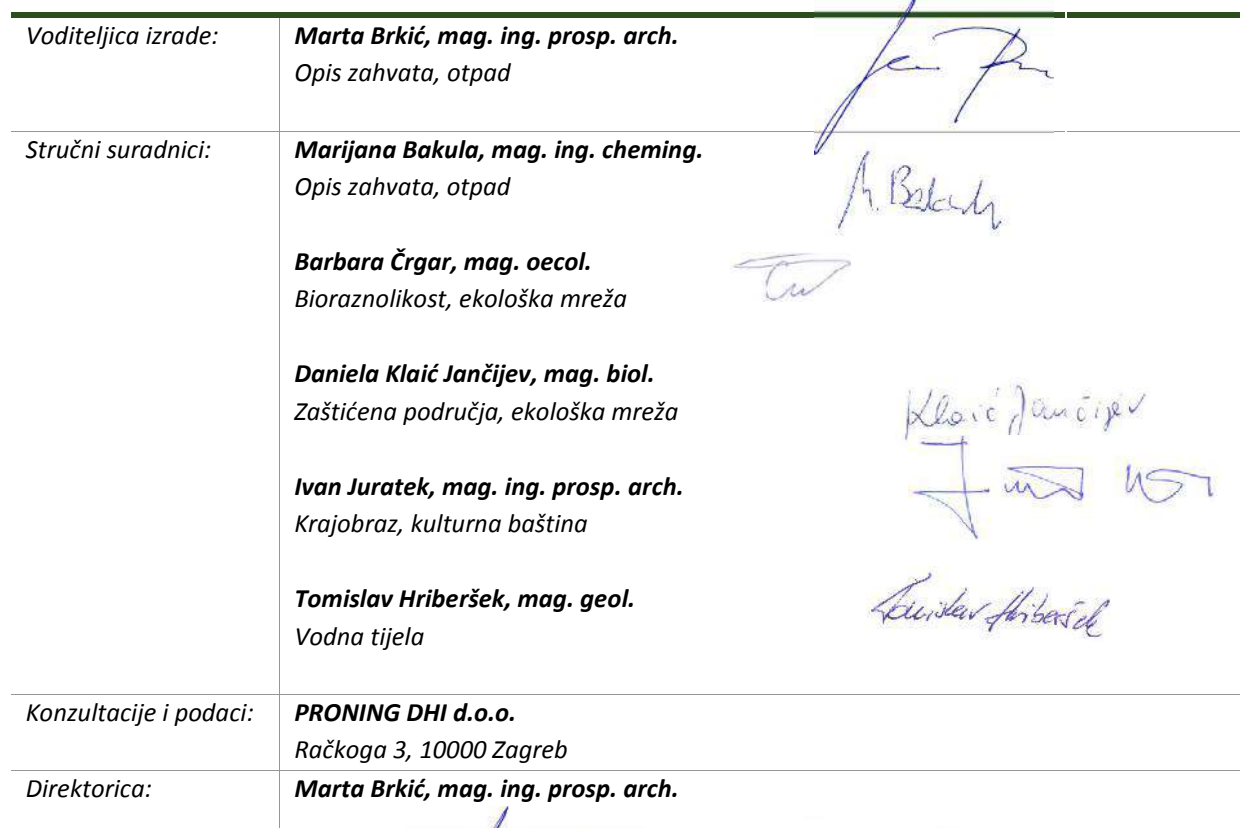 Voditeljica izrade:
Marta Brkić, mag. ing. prosp. arch.
Opis zahvata, otpad
Stručni suradnici:
Marijana Bakula, mag. ing. cheming.
Opis zahvata, otpad
M. Bakula
Barbara Črgar, mag. oecol.
Bioraznolikost, ekološka mreža
Daniela Klaić Jančijev, mag. biol.
Zaštićena područja, ekološka mreža
Klaić Jančijev
Ivan Juratek, mag. ing. prosp. arch.
Krajobraz, kulturna baština
Tomislav Hriberšek, mag. geol.
Vodna tijela
Tomislav Hriberšek
Konzultacije i podaci:
PRONING DHI d.o.o.
Račkoga 3, 10000 Zagreb
Direktorica:
Marta Brkić, mag. ing. prosp. arch.